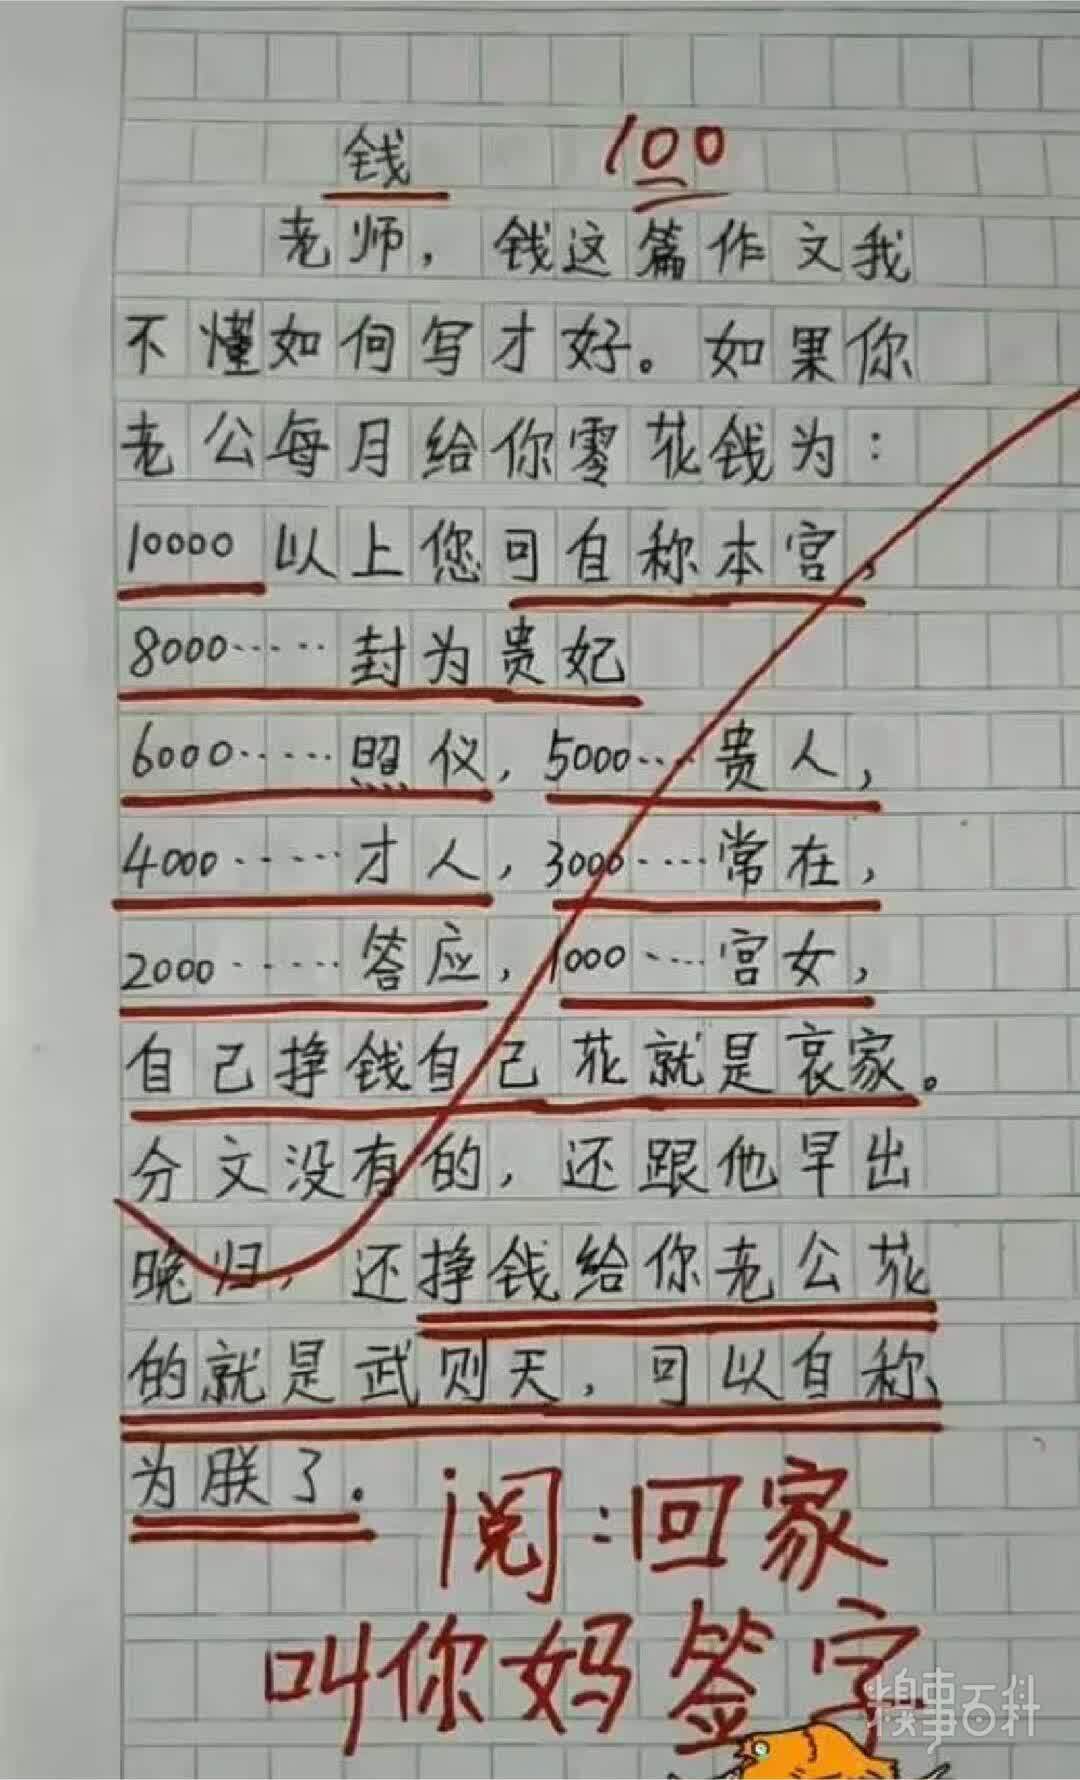 钱 100
老师，钱这篇作文我
不懂如何写才好。如果你
老公每月给你零花钱为：
10000 以上您可自称本宫，
8000……封为贵妃
6000……照仪，5000…贵人，
4000……才人，3000…常在，
2000……答应，1000…宫女，
自己挣钱自己花就是哀家。
分文没有的，还跟他早出
晚归，还挣钱给你老公花
的就是武则天，可以自称
为朕了。
阅：回家
叫你妈签字
糗事百科